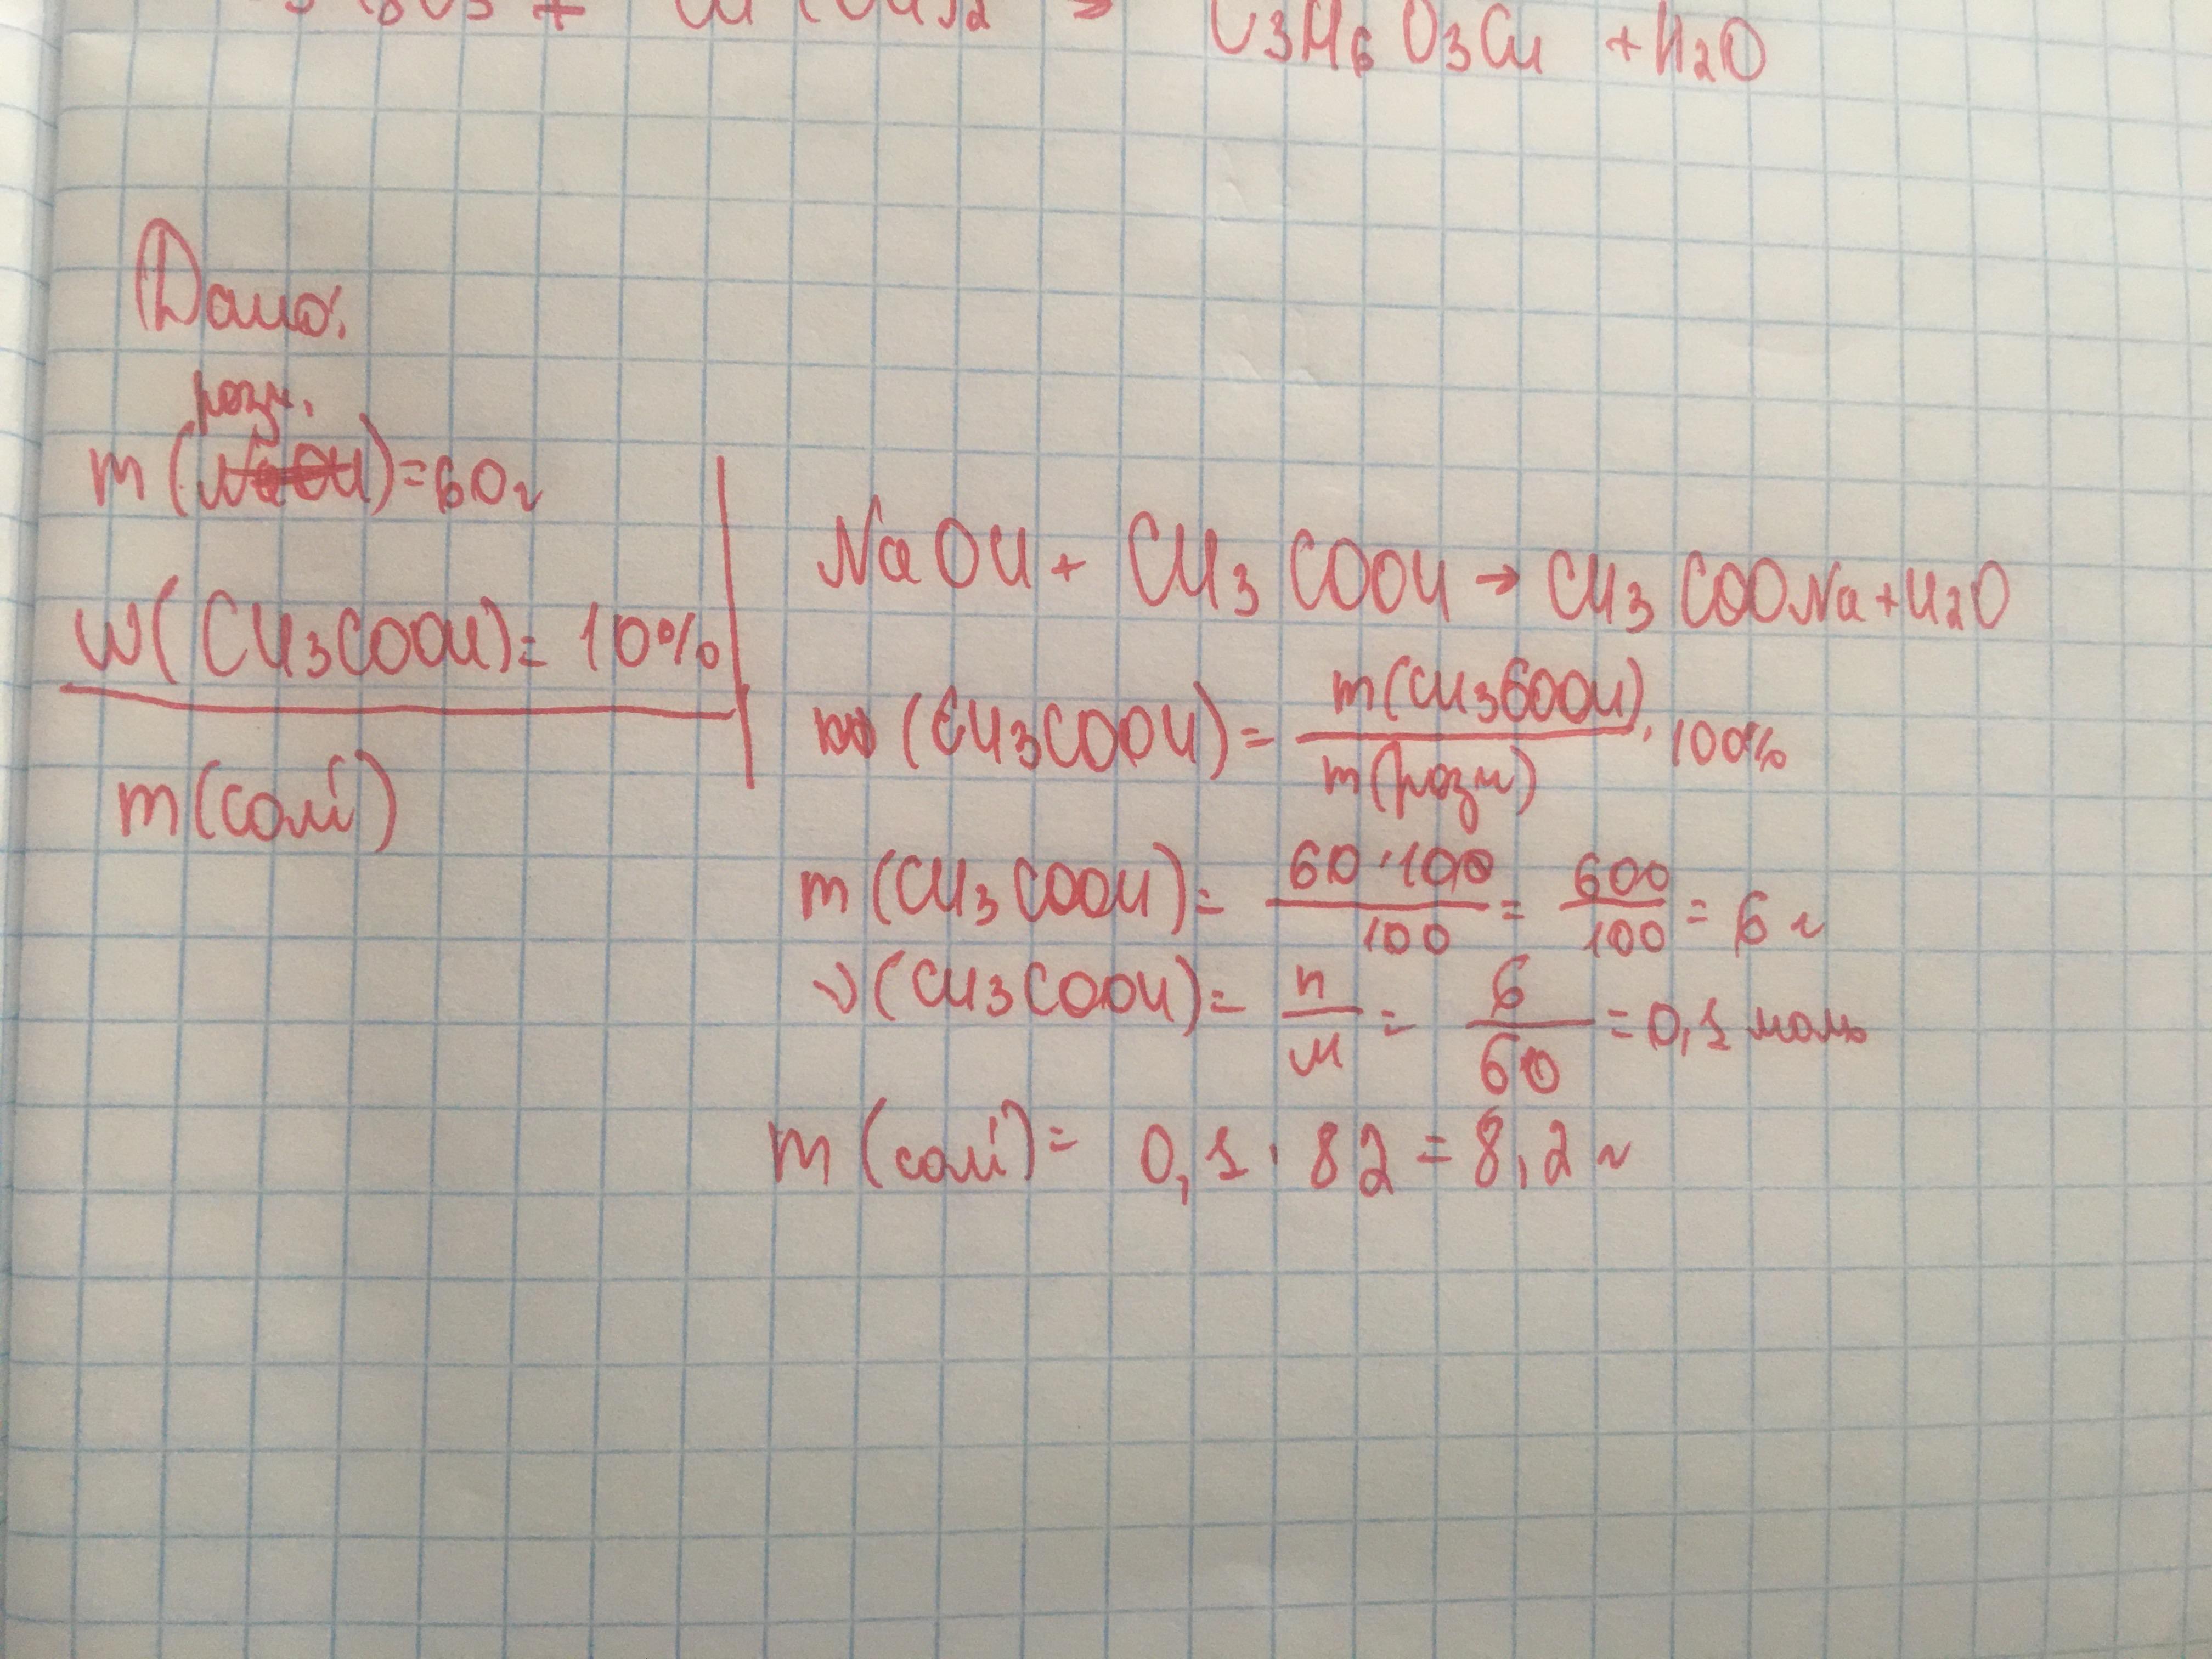 C3H6O3Cu + H2O
Дано:
розч.
m(NaOH)=60г
W(CH3COOH)= 10%
m(солі)
NaOH + CH3COOH → CH3COONa+H2O
w(CH3COOH)= m(CH3COOH)/m(розч) · 100%
m(CH3COOH)= 60·100/100 = 600/100 = 6 г
ν(CH3COOH)= n/M = 6/60 = 0,1 моль
m(солі)= 0,1 · 82 = 8,2 г